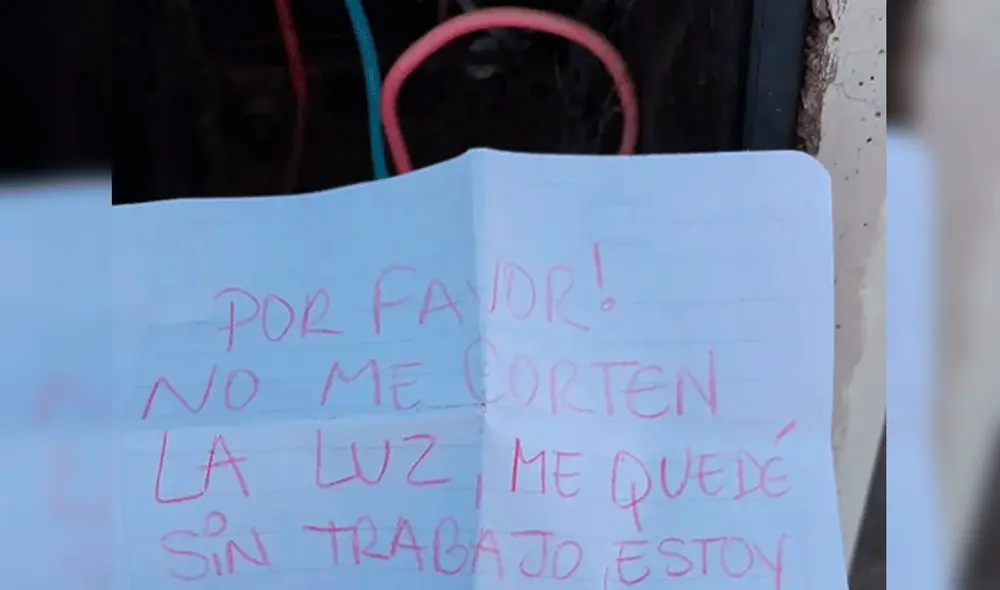 POR FAVOR!
NO ME CORTEN
LA LUZ, ME QUEDÉ
SiN TRABAJO, ESTOY